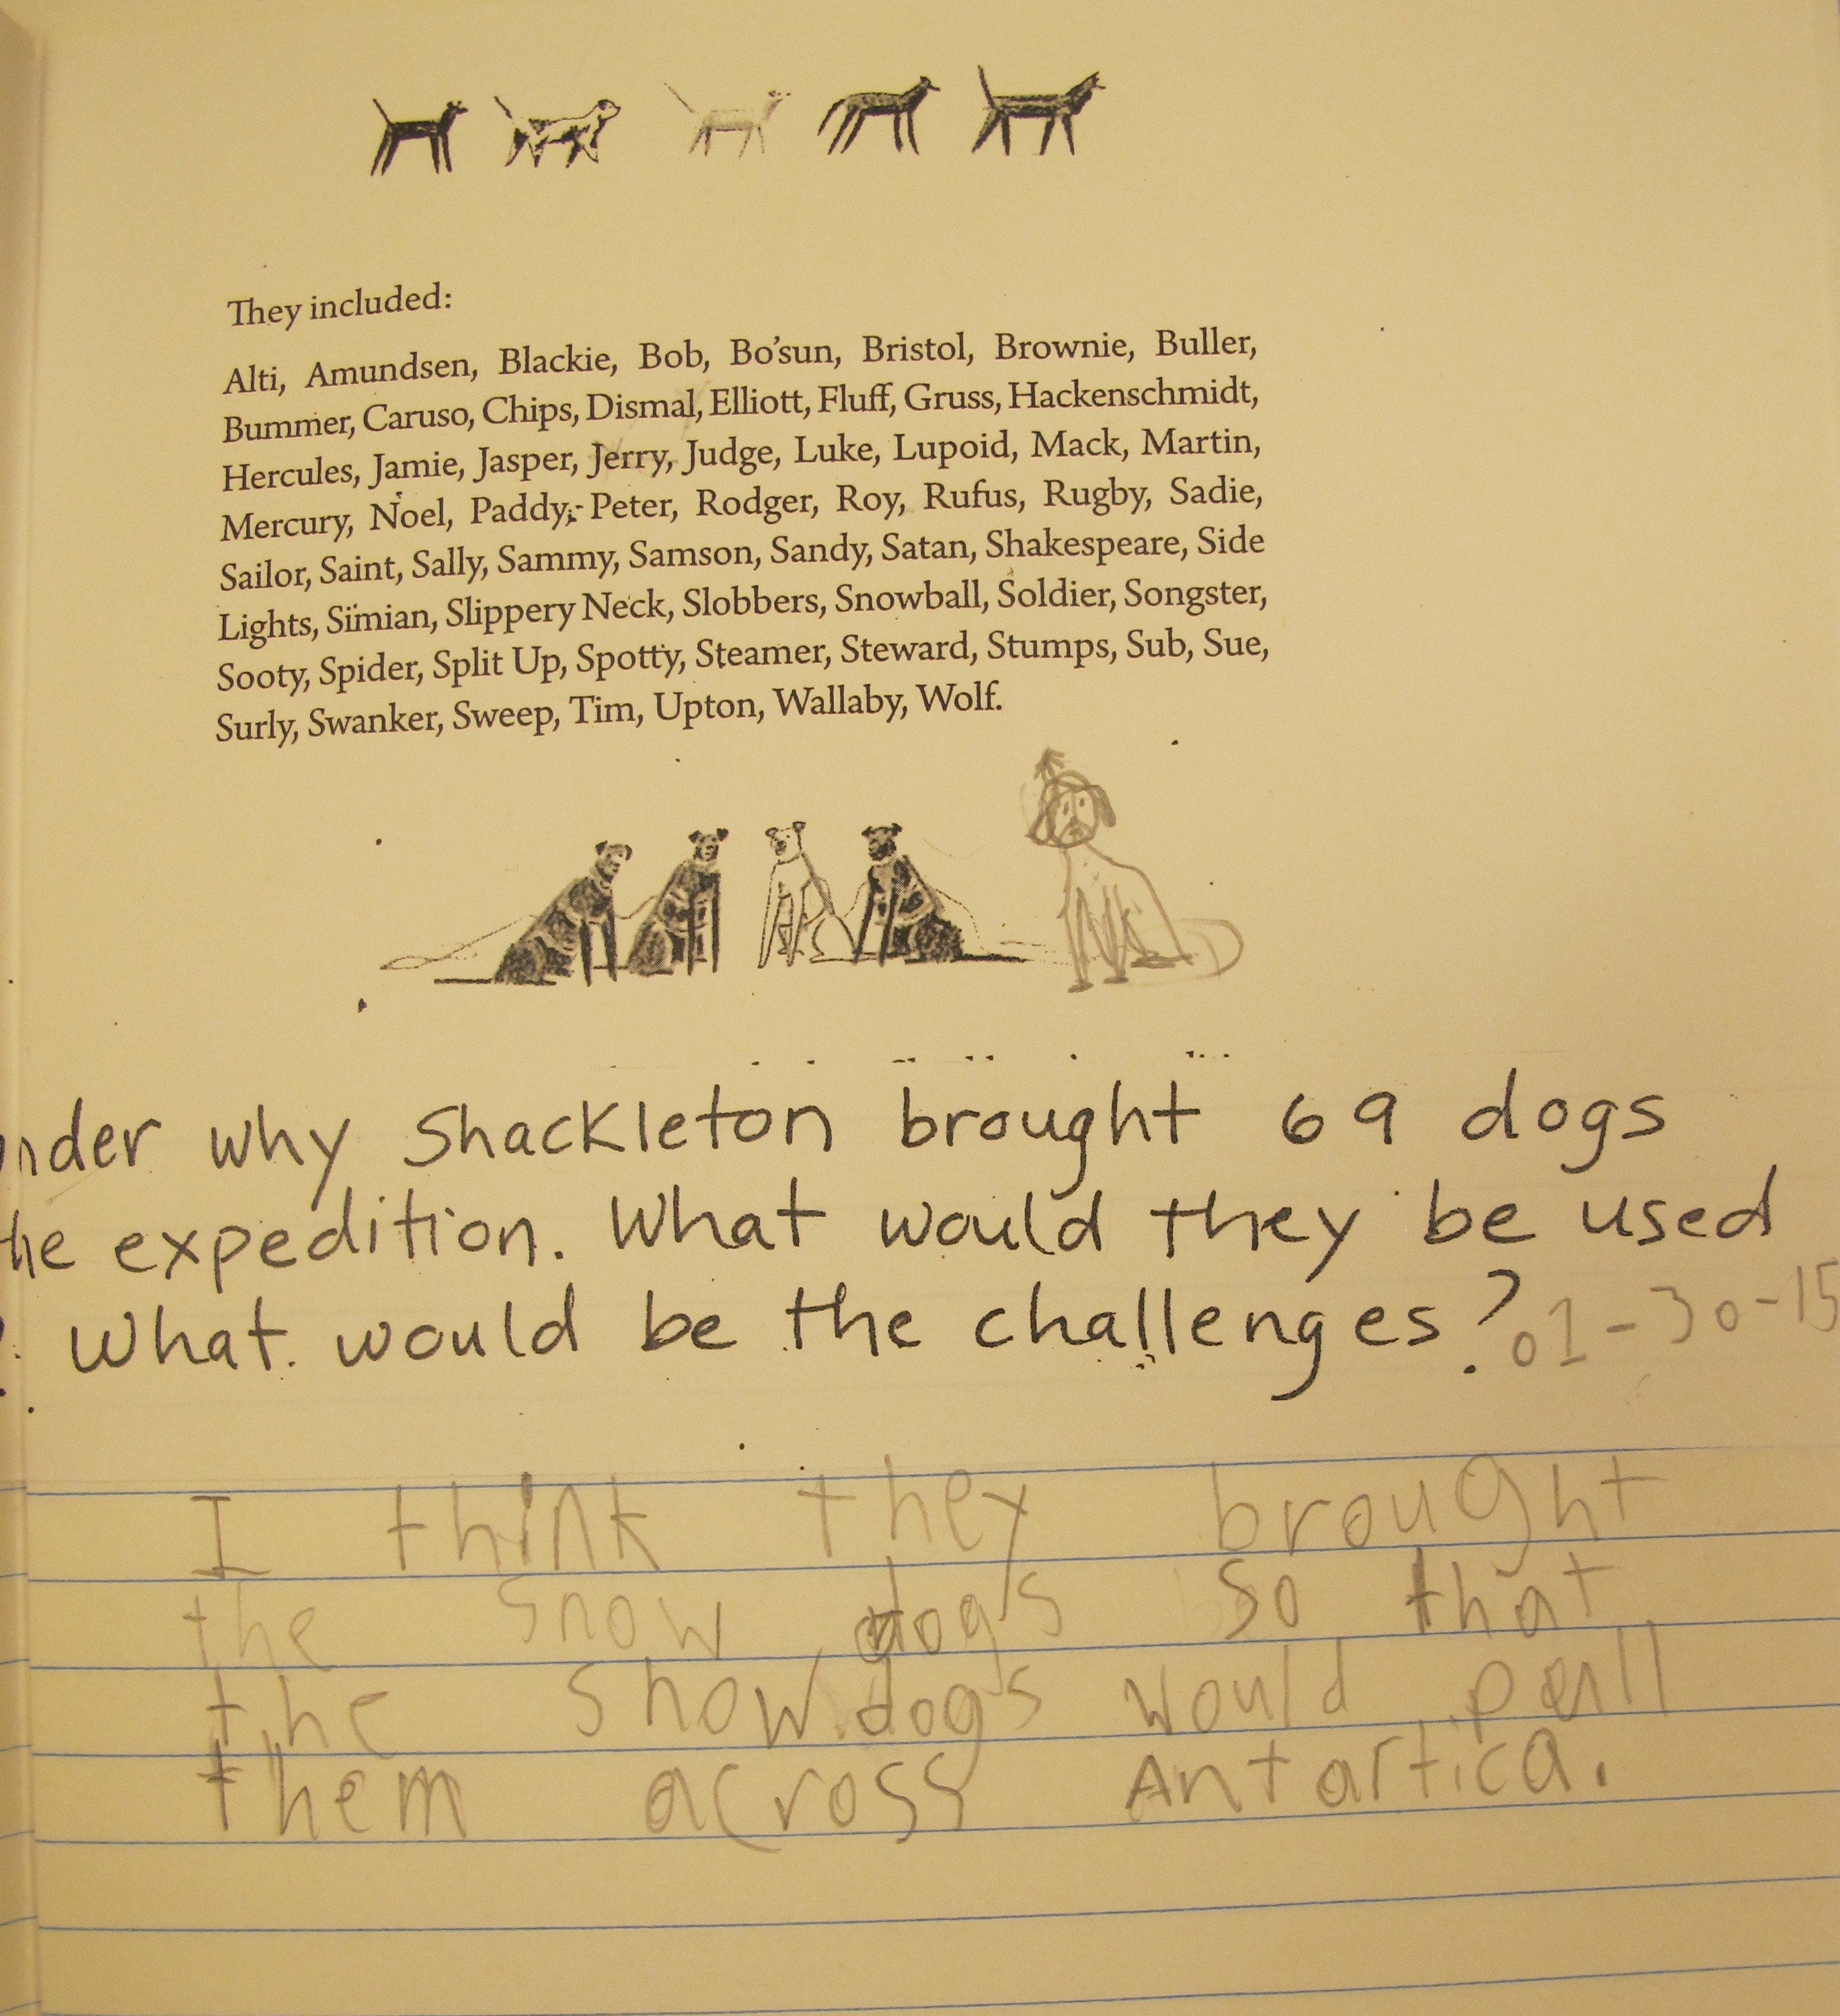 They included:
Alti, Amundsen, Blackie, Bob, Bo'sun, Bristol, Brownie, Buller,
Bummer, Caruso, Chips, Dismal, Elliott, Fluff, Gruss, Hackenschmidt,
Hercules, Jamie, Jasper, Jerry, Judge, Luke, Lupoid, Mack, Martin,
Mercury, Noel, Paddy, Peter, Rodger, Roy, Rufus, Rugby, Sadie,
Sailor, Saint, Sally, Sammy, Samson, Sandy, Satan, Shakespeare, Side
Lights, Simian, Slippery Neck, Slobbers, Snowball, Soldier, Songster,
Sooty, Spider, Split Up, Spotty, Steamer, Steward, Stumps, Sub, Sue,
Surly, Swanker, Sweep, Tim, Upton, Wallaby, Wolf.
nder why Shackleton brought 69 dogs
he expedition. What would they be used
? What would be the challenges? 01-30-15
I think they brought
the snow dogs so that
the snow dogs would pull
them across Antartica.